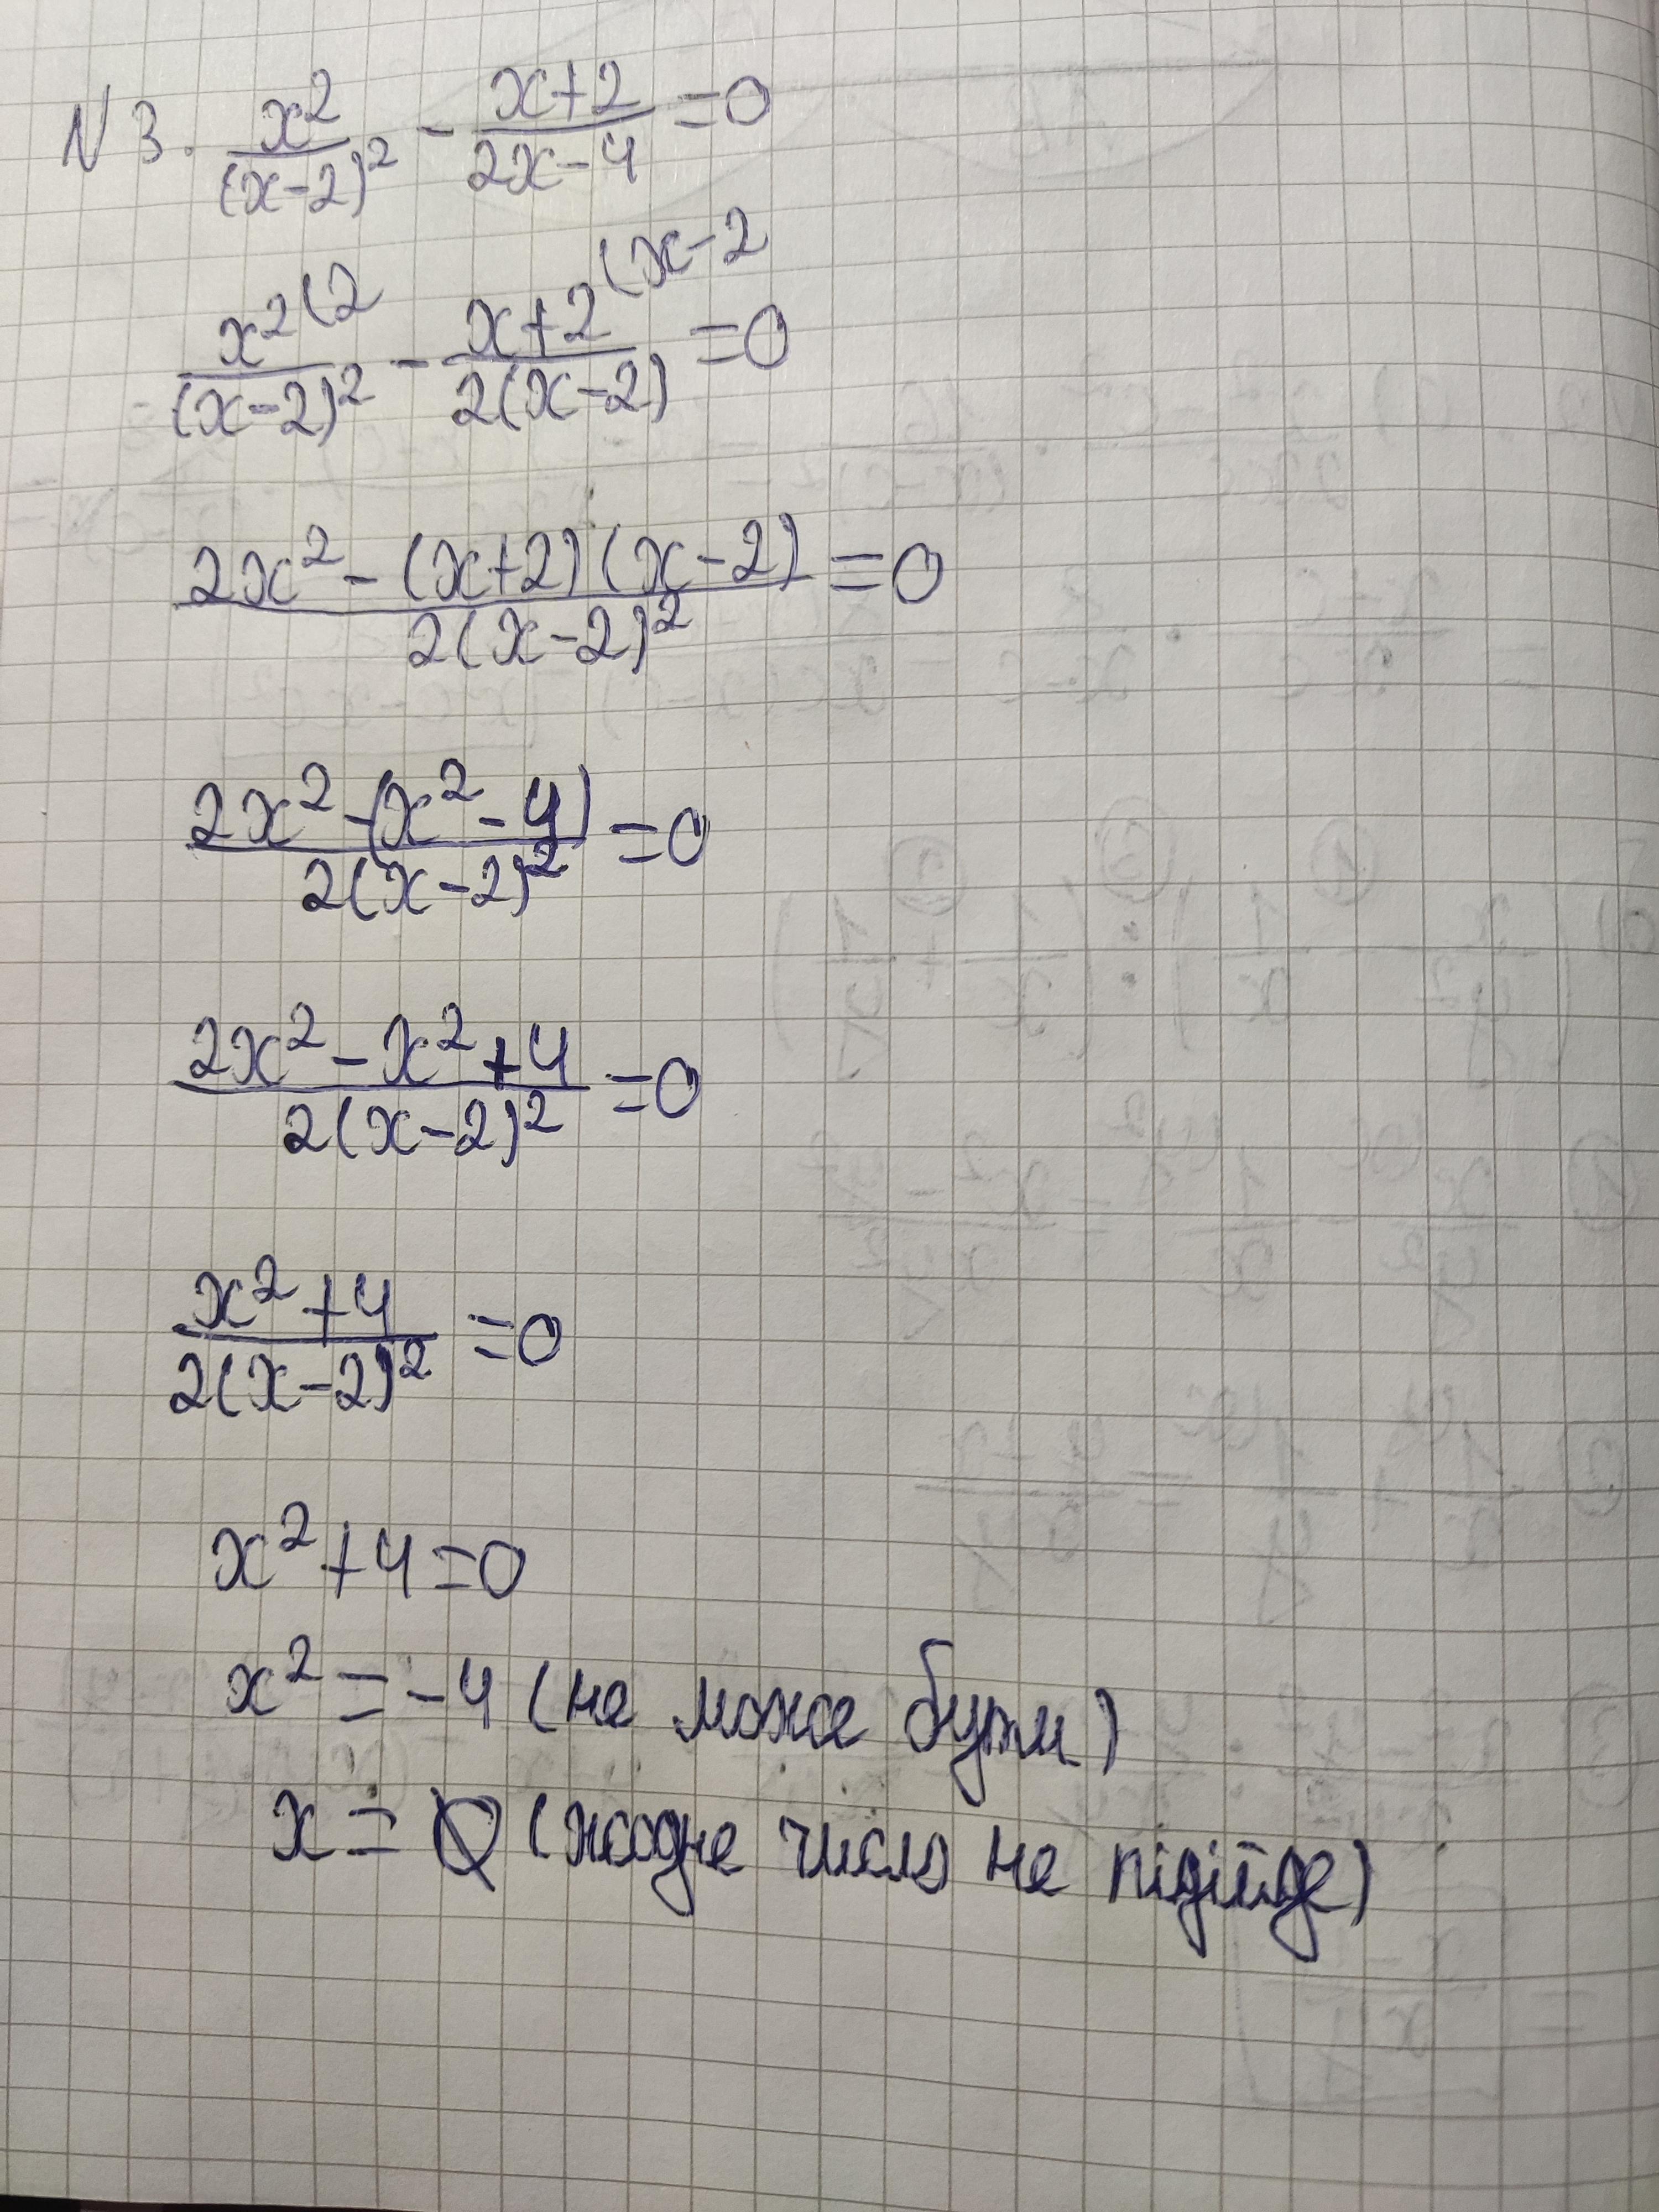 N 3. x²/(x-2)² - (x+2)/(2x-4) =0
x²(2/(x-2)² - x+2(x-2/2(x-2) =0
2x²-(x+2)(x-2)/2(x-2)² =0
2x²-(x²-4)/2(x-2)² =0
2x²-x²+4/2(x-2)² =0
x²+4/2(x-2)² =0
x²+4=0
x²=-4 (не може бути)
x=∅ (жодне число не підійде)